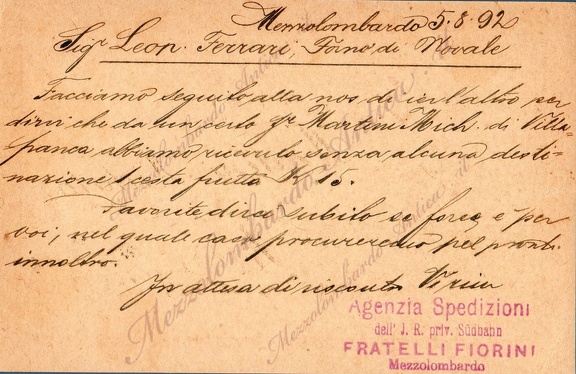 Mezzolombardo 5.8.92
Sigr Leop. Ferrari, Forno di Novale
Facciamo seguito alla nos. di ier l'altro per
dirvi che da un certo Sr. Martini Mich. di Villa-
franca abbiamo ricevuto senza alcuna desti-
nazione 1 cesta frutta K 15.
Favorite dirci subito se forse è per
voi, nel quale caso procureremo pel pronto
innoltro.
In attesa di riscontro
Agenzia Spedizioni
dell' J. R. priv. Südbahn
FRATELLI FIORINI
Mezzolombardo